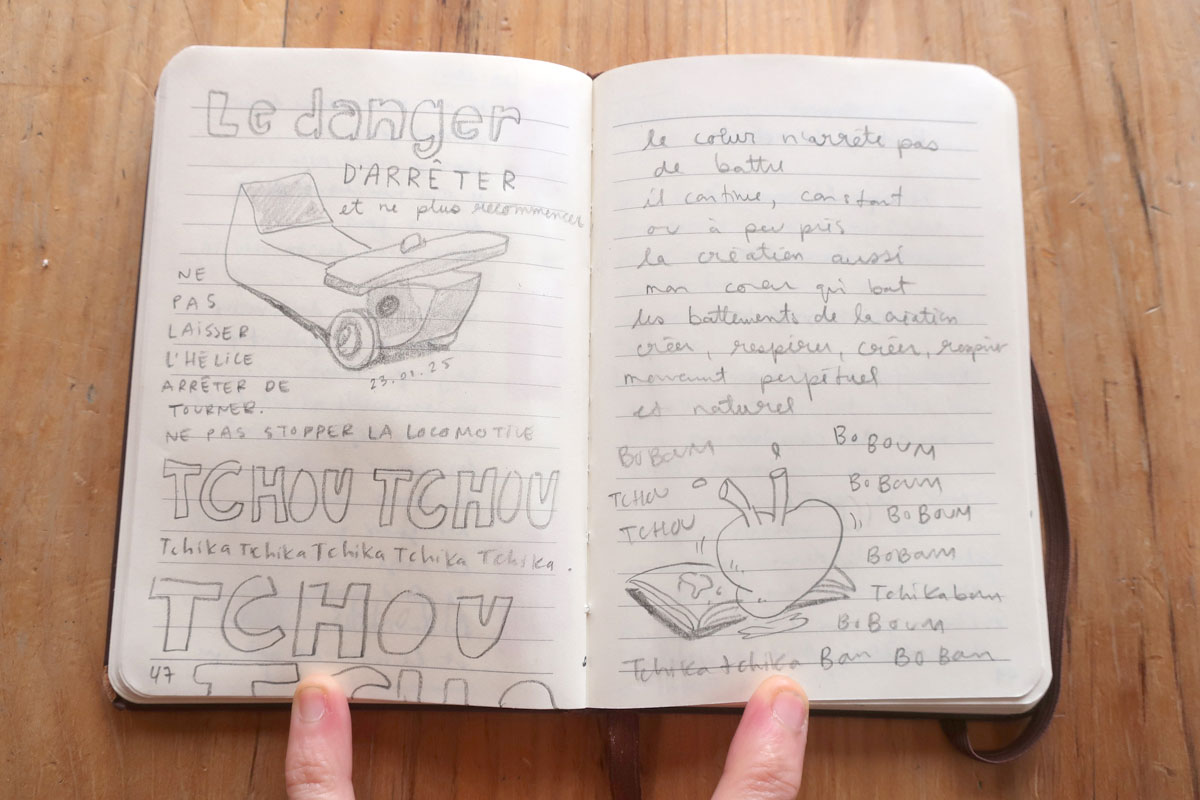 Le danger
D'ARRÊTER
et ne plus recommencer
NE
PAS
LAISSER
L'HÉLICE
ARRÊTER DE
TOURNER.
NE PAS STOPPER LA LOCOMOTIVE
23.01.25
TCHOU TCHOU
Tchika Tchika Tchika Tchika Tchika.
TCHOU
47
TCHO
le coeur n'arrête pas
de battre
il continue, constant
ou à peu près
la création aussi
mon coeur qui bat
les battements de la création
créer, respirer, créer, respirer
mouvement perpétuel
et naturel
BOBOUM
BOBOUM
TCHOU
BOBOUM
TCHOU
BOBOUM
BOBOUM
Tchikaboum
BOBOUM
Tchika tchika Bam Bo Bam